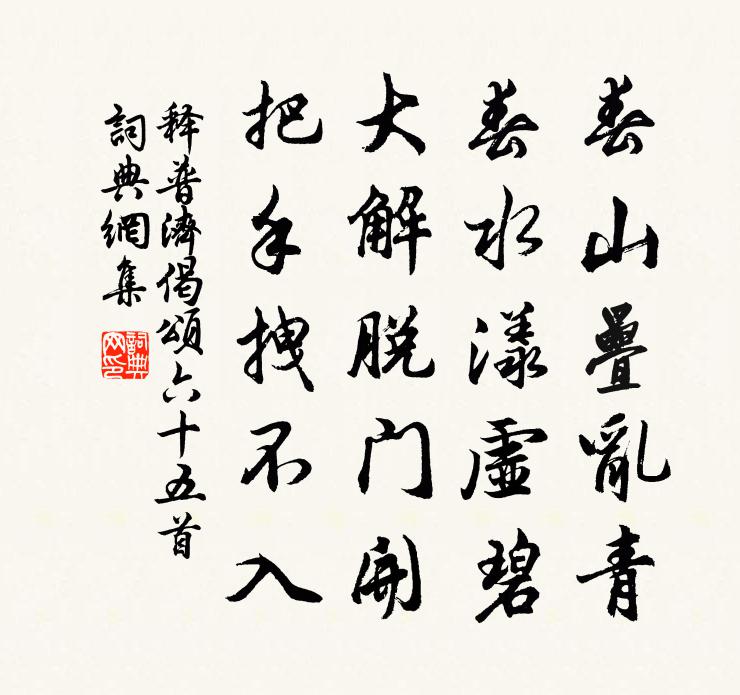 春山疊亂青
春水漾虛碧
大解脫門開
把手拽不入
释普濟偈頌六十五首
詞典網集
詞典網印